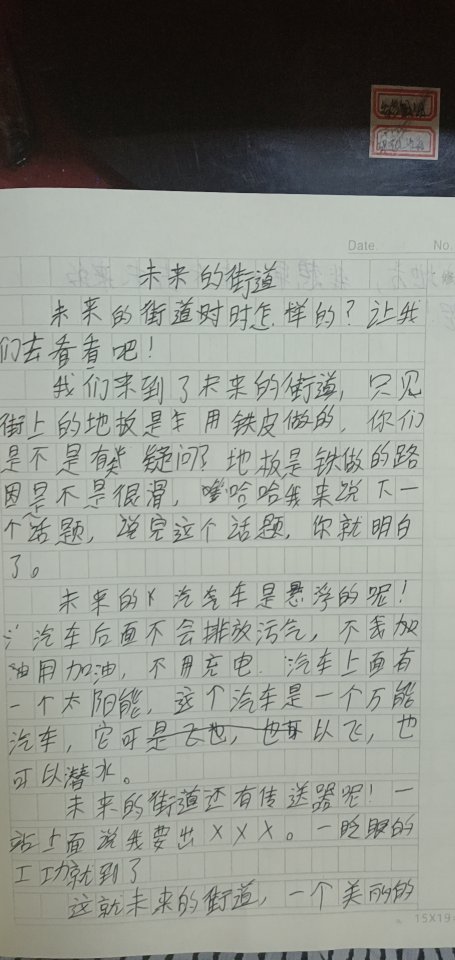 Date
No.
未来的街道
未来的街道时怎样的？让我
们去看看吧！
我们来到了未来的街道，只见
街上的地板是用铁皮做的，你们
是不是有疑问？地板是铁做的路
面是不是很滑，哈哈我来说下一
个话题，说完这个话题，你就明白
了。
未来的汽车是悬浮的呢！
汽车后面不会排放污气，不加
油用加油，不用充电．汽车上面有
一个太阳能，这个汽车是一个万能
汽车，它可以飞，也
可以潜水。
未来的街道还有传送器呢！一
站上面说我要出XXX。一眨眼的
工功就到了
这就未来的街道，一个美丽的
15X19